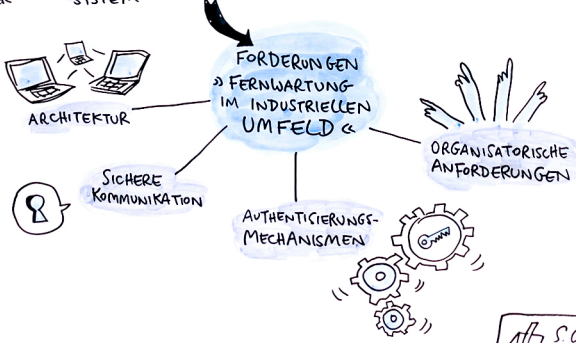 SYSTEM
FORDERUNGEN
»FERNWARTUNG
IM INDUSTRIELLEN
UMFELD«
ARCHITEKTUR
SICHERE
KOMMUNIKATION
AUTHENTISIERUNGS-
MECHANISMEN
ORGANISATORISCHE
ANFORDERUNGEN